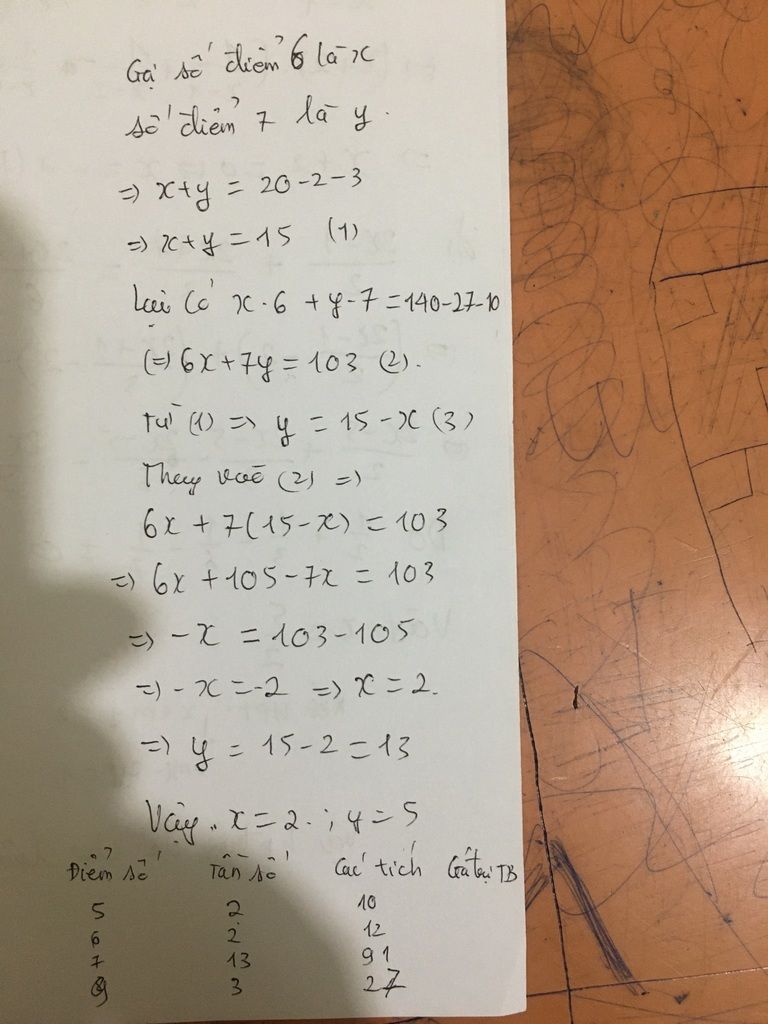 Gọi số điểm 6 là x
số điểm 7 là y.
=> x+y = 20-2-3
=> x+y = 15 (1)
Lại có x.6 + y.7 = 140-27-10
(=) 6x+7y = 103 (2).
Từ (1) => y = 15-x (3)
Thay vào (2) =>
6x + 7(15-x) = 103
=> 6x +105-7x = 103
=> -x = 103-105
=> -x = -2 => x = 2.
=> y = 15-2 = 13
Vậy.. x = 2.; y = 5
Điểm số Tần số Các tích Giá trị TB
5 2 10
6 2 12
7 13 91
9 3 27